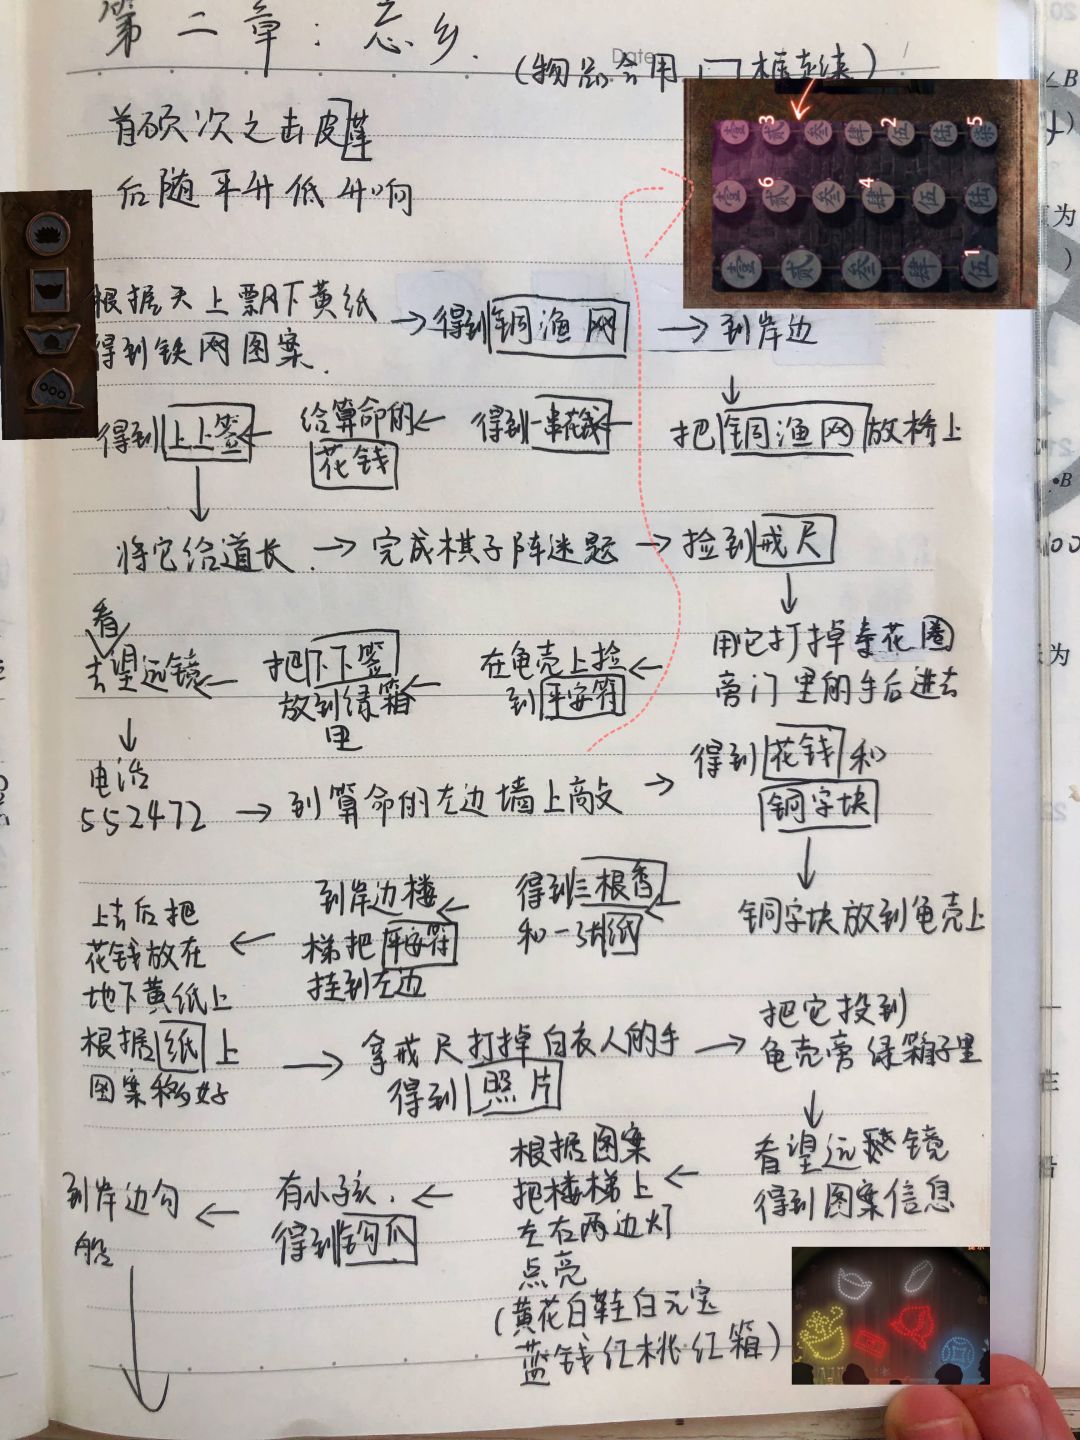 第二章：忘乡.
Date
(物品会用 框起来)
首硕次之击皮革
后随平升低升响
壹 贰 3 叁 肆 2 伍 陆 5 柒
壹 6 贰 叁 4 肆 伍 陆
壹 贰 叁 肆 1 伍
根据天上飘下黄纸
得到铁网图案.
→得到铜渔网
→到岸边
↓
把铜渔网放桥上
得到一串花钱←
给算命的←
花钱
得到上上签←
↓
将它给道长.
→完成棋子阵迷题
→捡到戒尺
↓
用它打掉花圈
旁门里的手后进去
在龟壳上捡←
到平安符
把下下签
放到绿箱←
里
看
去望远镜←
↓
电话
552472
→到算命的左边墙上敲
→
得到花钱和
铜字块
↓
铜字块放到龟壳上
得到三根香
和一张纸←
到岸边楼←
梯把平安符
挂到左边
上去后把
花钱放在←
地下黄纸上
根据纸上
图案移好
→
拿戒尺打掉白衣人的手
得到照片
→
把它投到
龟壳旁绿箱子里
↓
看望远镜
得到图案信息
根据图案
把楼梯上←
左右两边灯
点亮
(黄花白鞋白元宝
蓝钱红桃红箱)
有小孩.←
得到钩爪
到岸边勾←
船
↓